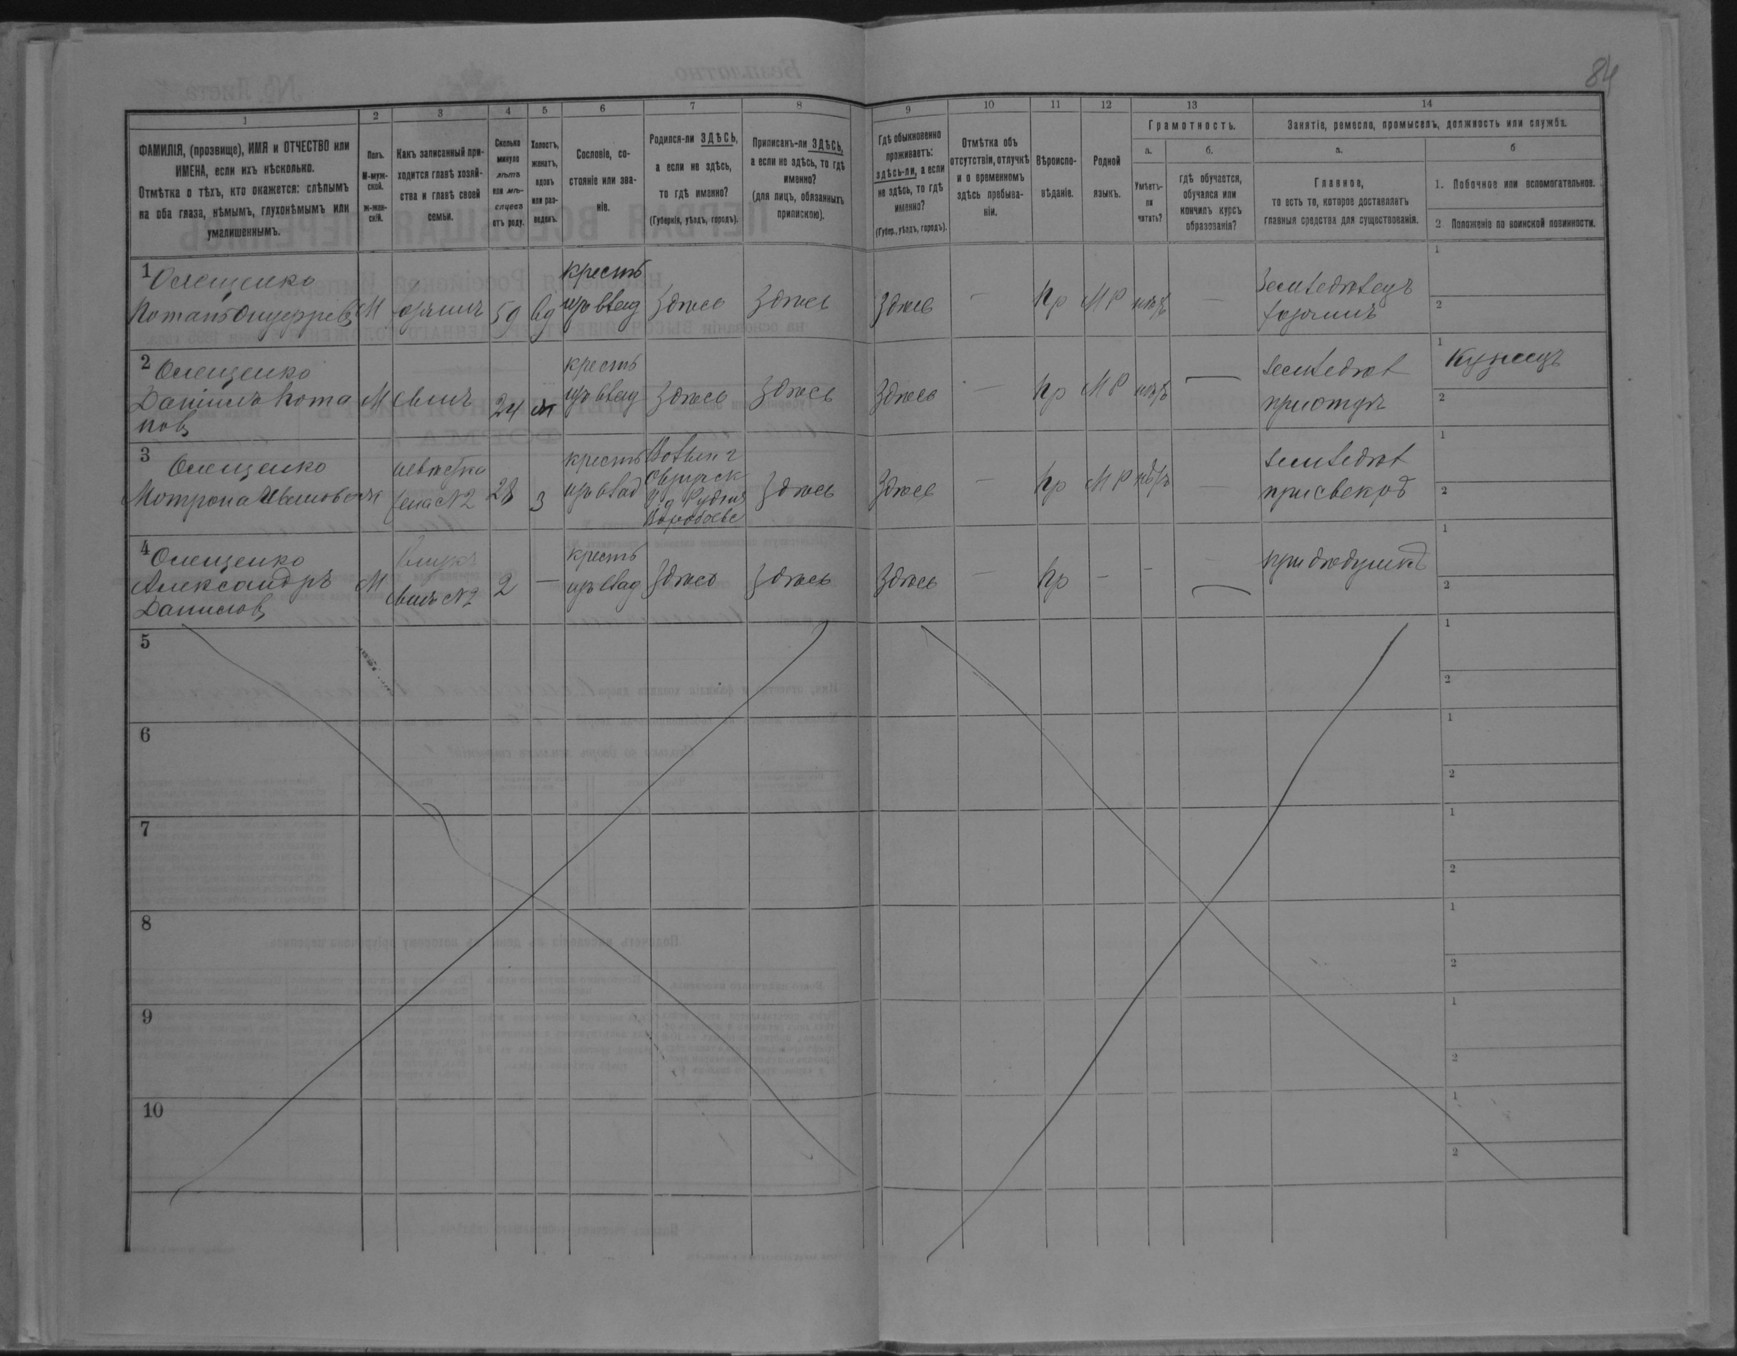 84
1
2
3
4
5
6
7
8
9
10
11
12
13
14
ФАМИЛІЯ, (прозвище), ИМЯ и ОТЧЕСТВО или
ИМЕНА, если ихъ нѣсколько.
Отмѣтка о тѣхъ, кто окажется: слѣпымъ
на оба глаза, нѣмымъ, глухонѣмымъ или
умалишеннымъ.
Полъ.
М-муж-
ской.
ж-жен-
скій.
Какъ записанный при-
ходится главѣ хозяй-
ства и главѣ своей
семьи.
Сколько
минуло
лѣтъ
или мѣ-
сяцевъ
отъ роду.
Холостъ,
женатъ,
вдовъ
или раз-
веденъ.
Сословіе, со-
стояніе или зва-
ніе.
Родился-ли ЗДѢСЬ,
а если не здѣсь,
то гдѣ именно?
(Губернія, уѣздъ, городъ).
Приписанъ-ли ЗДѢСЬ,
а если не здѣсь, то гдѣ
именно?
(для лицъ, обязанныхъ
припискою).
Гдѣ обыкновенно
проживаетъ:
здѣсь-ли, а если
не здѣсь, то гдѣ
именно?
(Губер., уѣздъ, городъ).
Отмѣтка объ
отсутствіи, отлучкѣ
и о временномъ
здѣсь пребыва-
ніи.
Вѣроиспо-
вѣданіе.
Родной
языкъ.
Грамотность.
а.
б.
Умѣетъ-
ли
читать?
гдѣ обучается,
обучался или
кончилъ курсъ
образованія?
Занятіе, ремесло, промыселъ, должность или служба.
а.
б
Главное,
то есть то, которое доставляетъ
главныя средства для существованія.
1. Побочное или вспомогательное.
2 Положеніе по воинской повинности.
1
Олещенко
Потапъ Онуфріев
М
хозяинъ
59
вд
крестъ
изъ влад
Здѣсь
Здѣсь
Здѣсь
—
Пр
МР
нѣтъ
—
Земледѣлецъ
хозяинъ
1
2
2
Олещенко
Даніилъ Пота
пов
М
сынъ
24
крестъ
изъ влад
Здѣсь
Здѣсь
Здѣсь
—
Пр
МР
нѣтъ
—
Земледѣл
при отцѣ
1 Кузнецъ
2
3
Олещенко
Мотрона
невѣстка
жена №2
28
З
крестъ
изъ влад
Здѣсь
Здѣсь
—
Пр
МР
нѣтъ
—
Земледѣл
при свекрѣ
1
2
4
Олещенко
Александръ
Данилов
М
внукъ
сынъ №2
2
—
крестъ
изъ влад
Здѣсь
Здѣсь
Здѣсь
—
Пр
-
-
—
при дѣдушкѣ
1
2
5
1
2
6
1
2
7
1
2
8
1
2
9
1
2
10
1
2